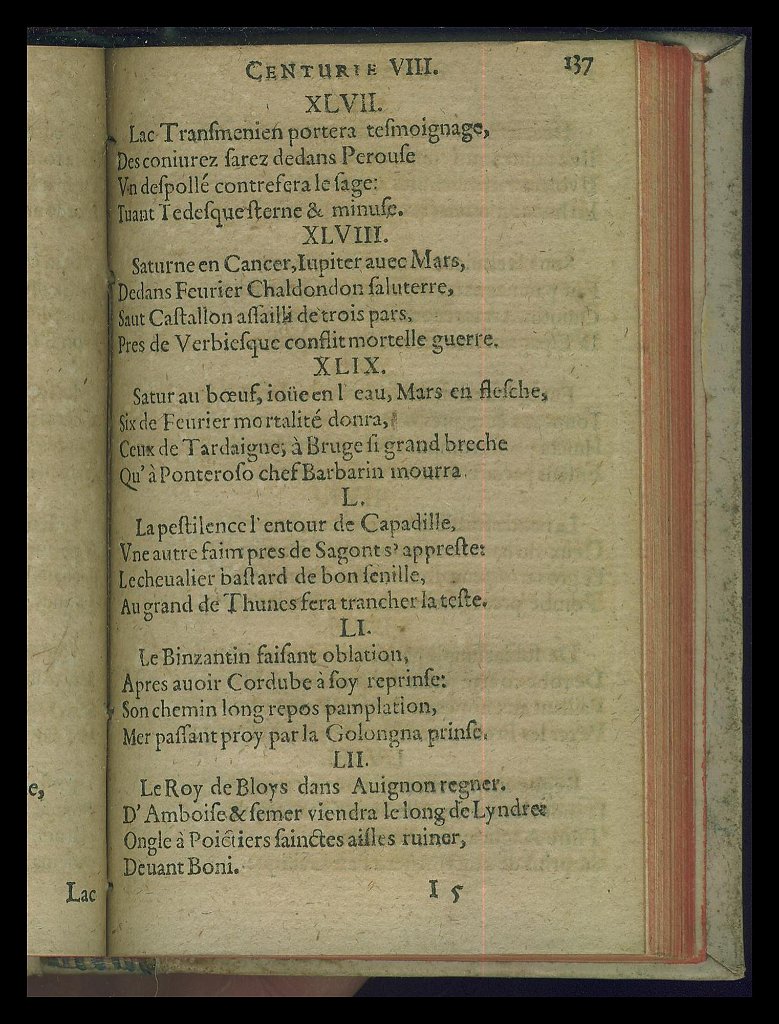 CENTURIE VIII. 137
XLVII.
Lac Tranſmenien portera teſmoignage,
Des coniurez ſarez dedans Perouſe
Vn deſpollé contrefera le ſage:
Tuant Tedeſque ſterne & minuſe.
XLVIII.
Saturne en Cancer, Iupiter auec Mars,
Dedans Feurier Chaldondon ſaluterre,
Saut Caſtallon aſſailli de trois pars,
Pres de Verbieſque conflit mortelle guerre.
XLIX.
Satur au bœuf, ioüe en l' eau, Mars en fleſche,
Six de Feurier mortalité donra,
Ceux de Tardaigne, à Bruge ſi grand breche
Qu' à Ponteroſo chef Barbarin mourra.
L.
La peſtilence l' entour de Capadille,
Vne autre faim pres de Sagont s' appreſte:
Le cheualier baſtard de bon ſenille,
Au grand de Thunes fera trancher la teſte.
LI.
Le Binzantin faiſant oblation,
Apres auoir Cordube à ſoy reprinſe:
Son chemin long repos pamplation,
Mer paſſant proy par la Golongna prinſe.
LII.
Le Roy de Bloys dans Auignon regner.
D' Amboiſe & ſemer viendra le long de Lyndre:
Ongle à Poićtiers ſainctes aiſles ruiner,
Deuant Boni.
I 5
e,
Lac